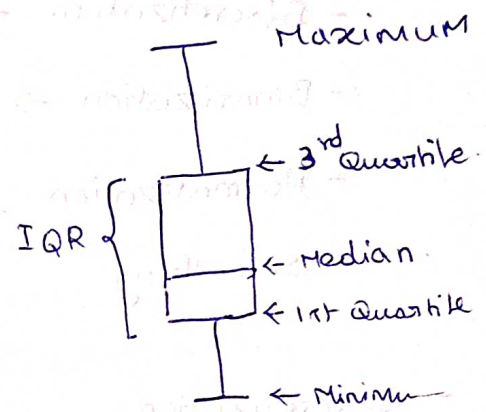 Maximum
← 3rd Quartile
IQR
← Median
← 1st Quartile
← Minimu